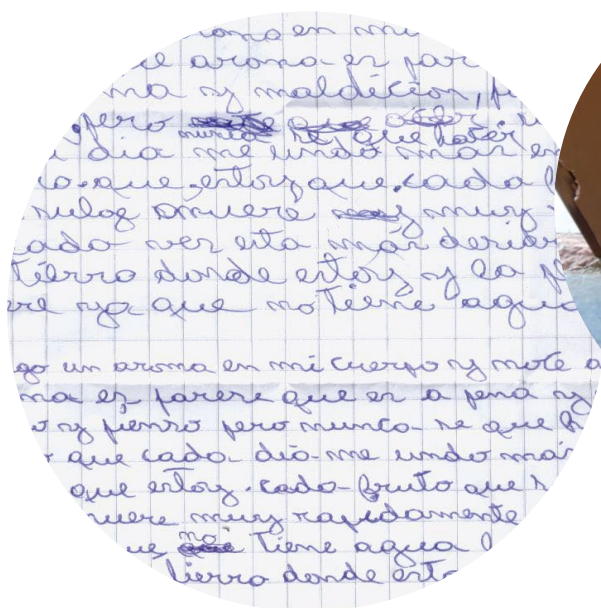 oma en mi
ue aroma es par
na y maldicion, p
pero
nunca se que hacer
dia me undo mas en
o que estoy que cada
muere y muy
cada ves esta mas
tierra donde estoy y la p
re ya que no tiene agua
go un aroma en mi cuerpo y note a
ma es parece que es a pena y
o y pienso pero nunca se que h
que cada dia me undo mas
que estoy cada fruto que h
uere muy rapidamente
no
ue tiene agua l
tierra donde esto